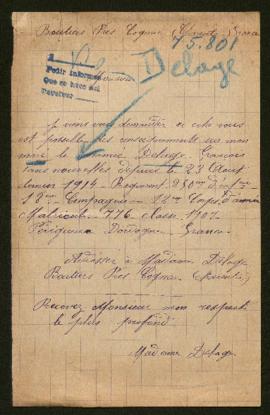 Boutiers Près Cognac (Charente) France
75.801
Pedir informes
Que se hace así
Devolver
D
Delage
Je viens vous demander si cela vous
est possible des renseignements sur mon
mari le nommé Delage François
sans nouvelles depuis le 23 Août
1914 - Régiment 250me d'inf
18me Compagnie - 12me Corps d'armée
Matricule 776 classe 1907
Périgueux Dordogne France
Adresser à Madame Delage
Boutiers Près Cognac (Charente)
Recevez Monsieur mon respect
le plus profond
Madame Delage